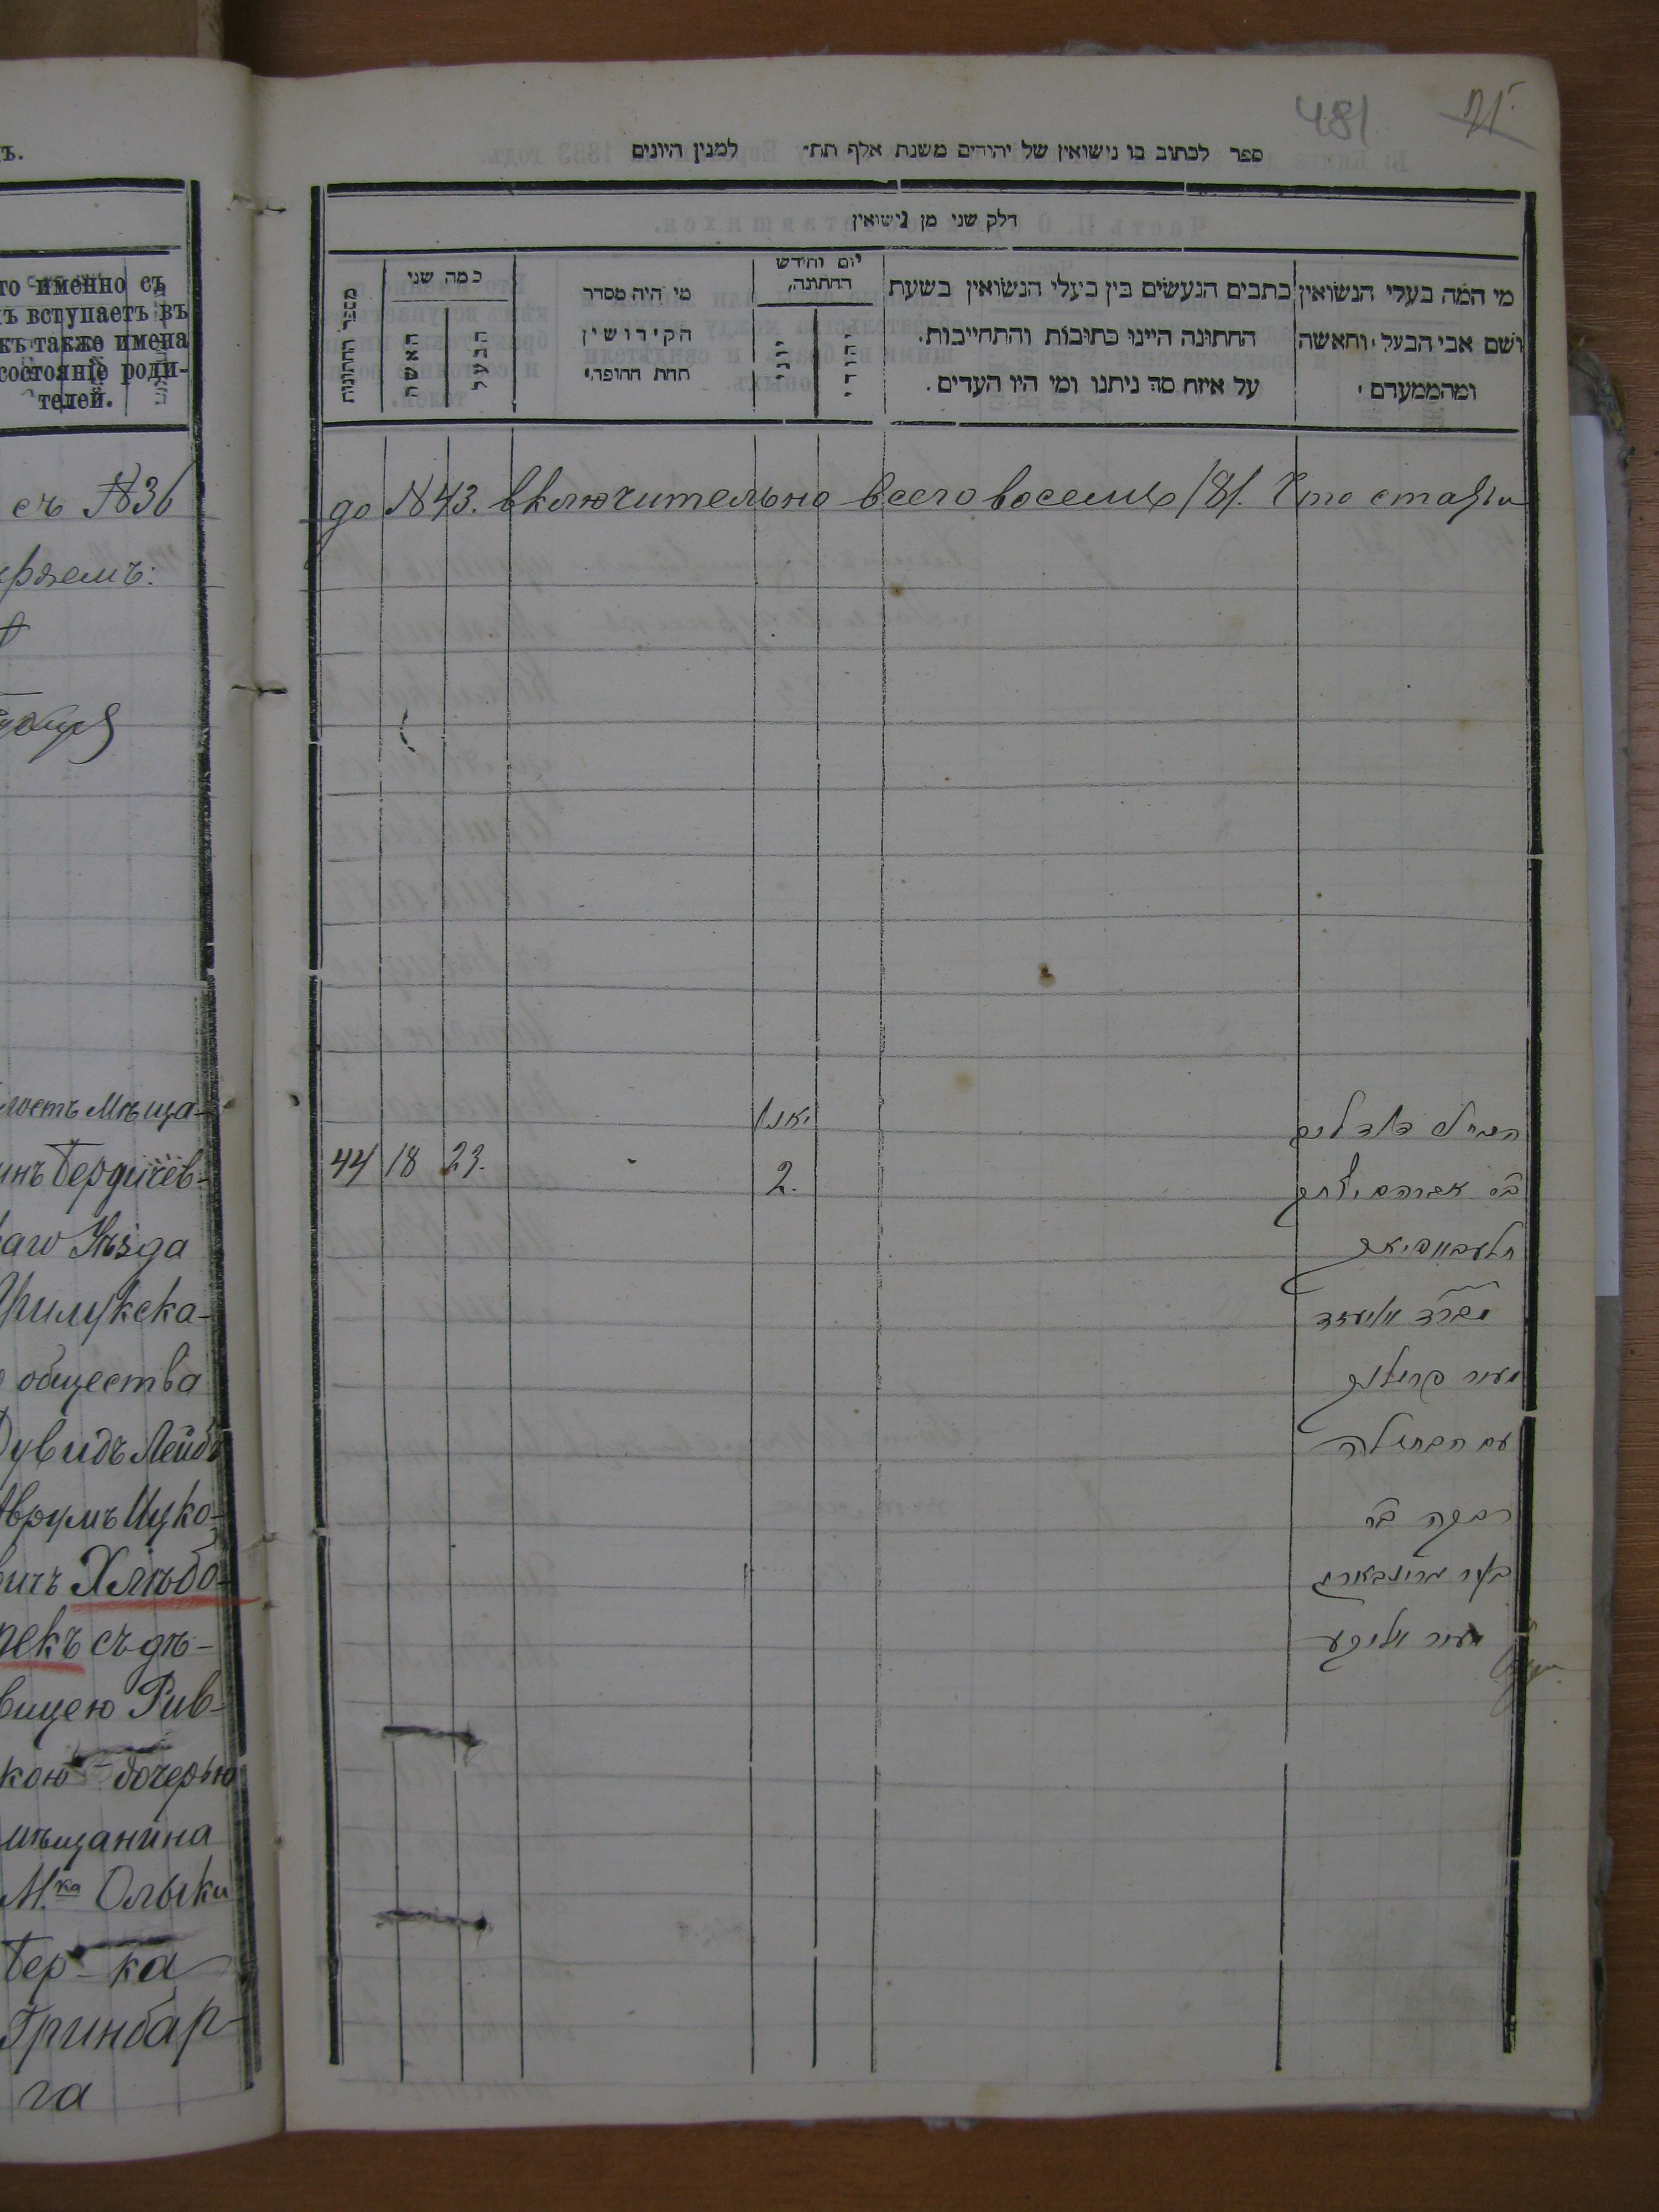 ъ.
то именно съ
ъ вступаетъ въ
къ также имена
состоянiе роди-
телей.
съ №36
ряемъ:
лостъ Мѣща-
инъ Бердичев-
каго Уѣзда
Прилукска-
о общества
Дувидъ Лейбъ
Аврумъ Ицко-
вичъ Хлѣбо-
пекъ съ дѣ-
вицею Рив-
кою дочерью
мѣщанина
М.ка Олыки
Бер-ка
Гринбар-
га
481 21
ספר לכתוב בו נישואין של יהודים משנת אלף תת״ למנין היונים
חלק שני מן נישואין
מספר החתונות
כמה שני
האשה
הבעל
מי היה מסדר
הקידושין
תחת החופה.
יום וחודש
החתונה.
יוני
יהודי
כתבים הנעשים בין בעלי הנשואין בשעת
החתונה היינו כתובות והתחייבות.
על איזה סך ניתנו ומי היו העדים.
מי המה בעלי הנשואין
ושם אבי הבעל והאשה
ומהממעדם
до №43. включительно всего восемь /8/. Что стать
יאנ׳
44 18 23. 2.
הבחור דוד ליב
ב״ר אברהם יצחק
חלעבאפיאק
מעיר פרילוק
עם הבתולה
רבקה ב״ר
בער גרינבארג
מעיר אליקע